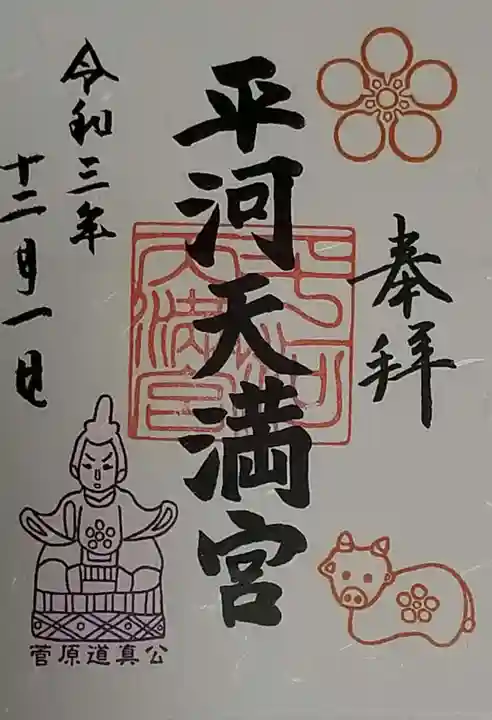 奉拝
平河天満宮
平河
天満宮
令和三年
十二月一日
菅原道真公